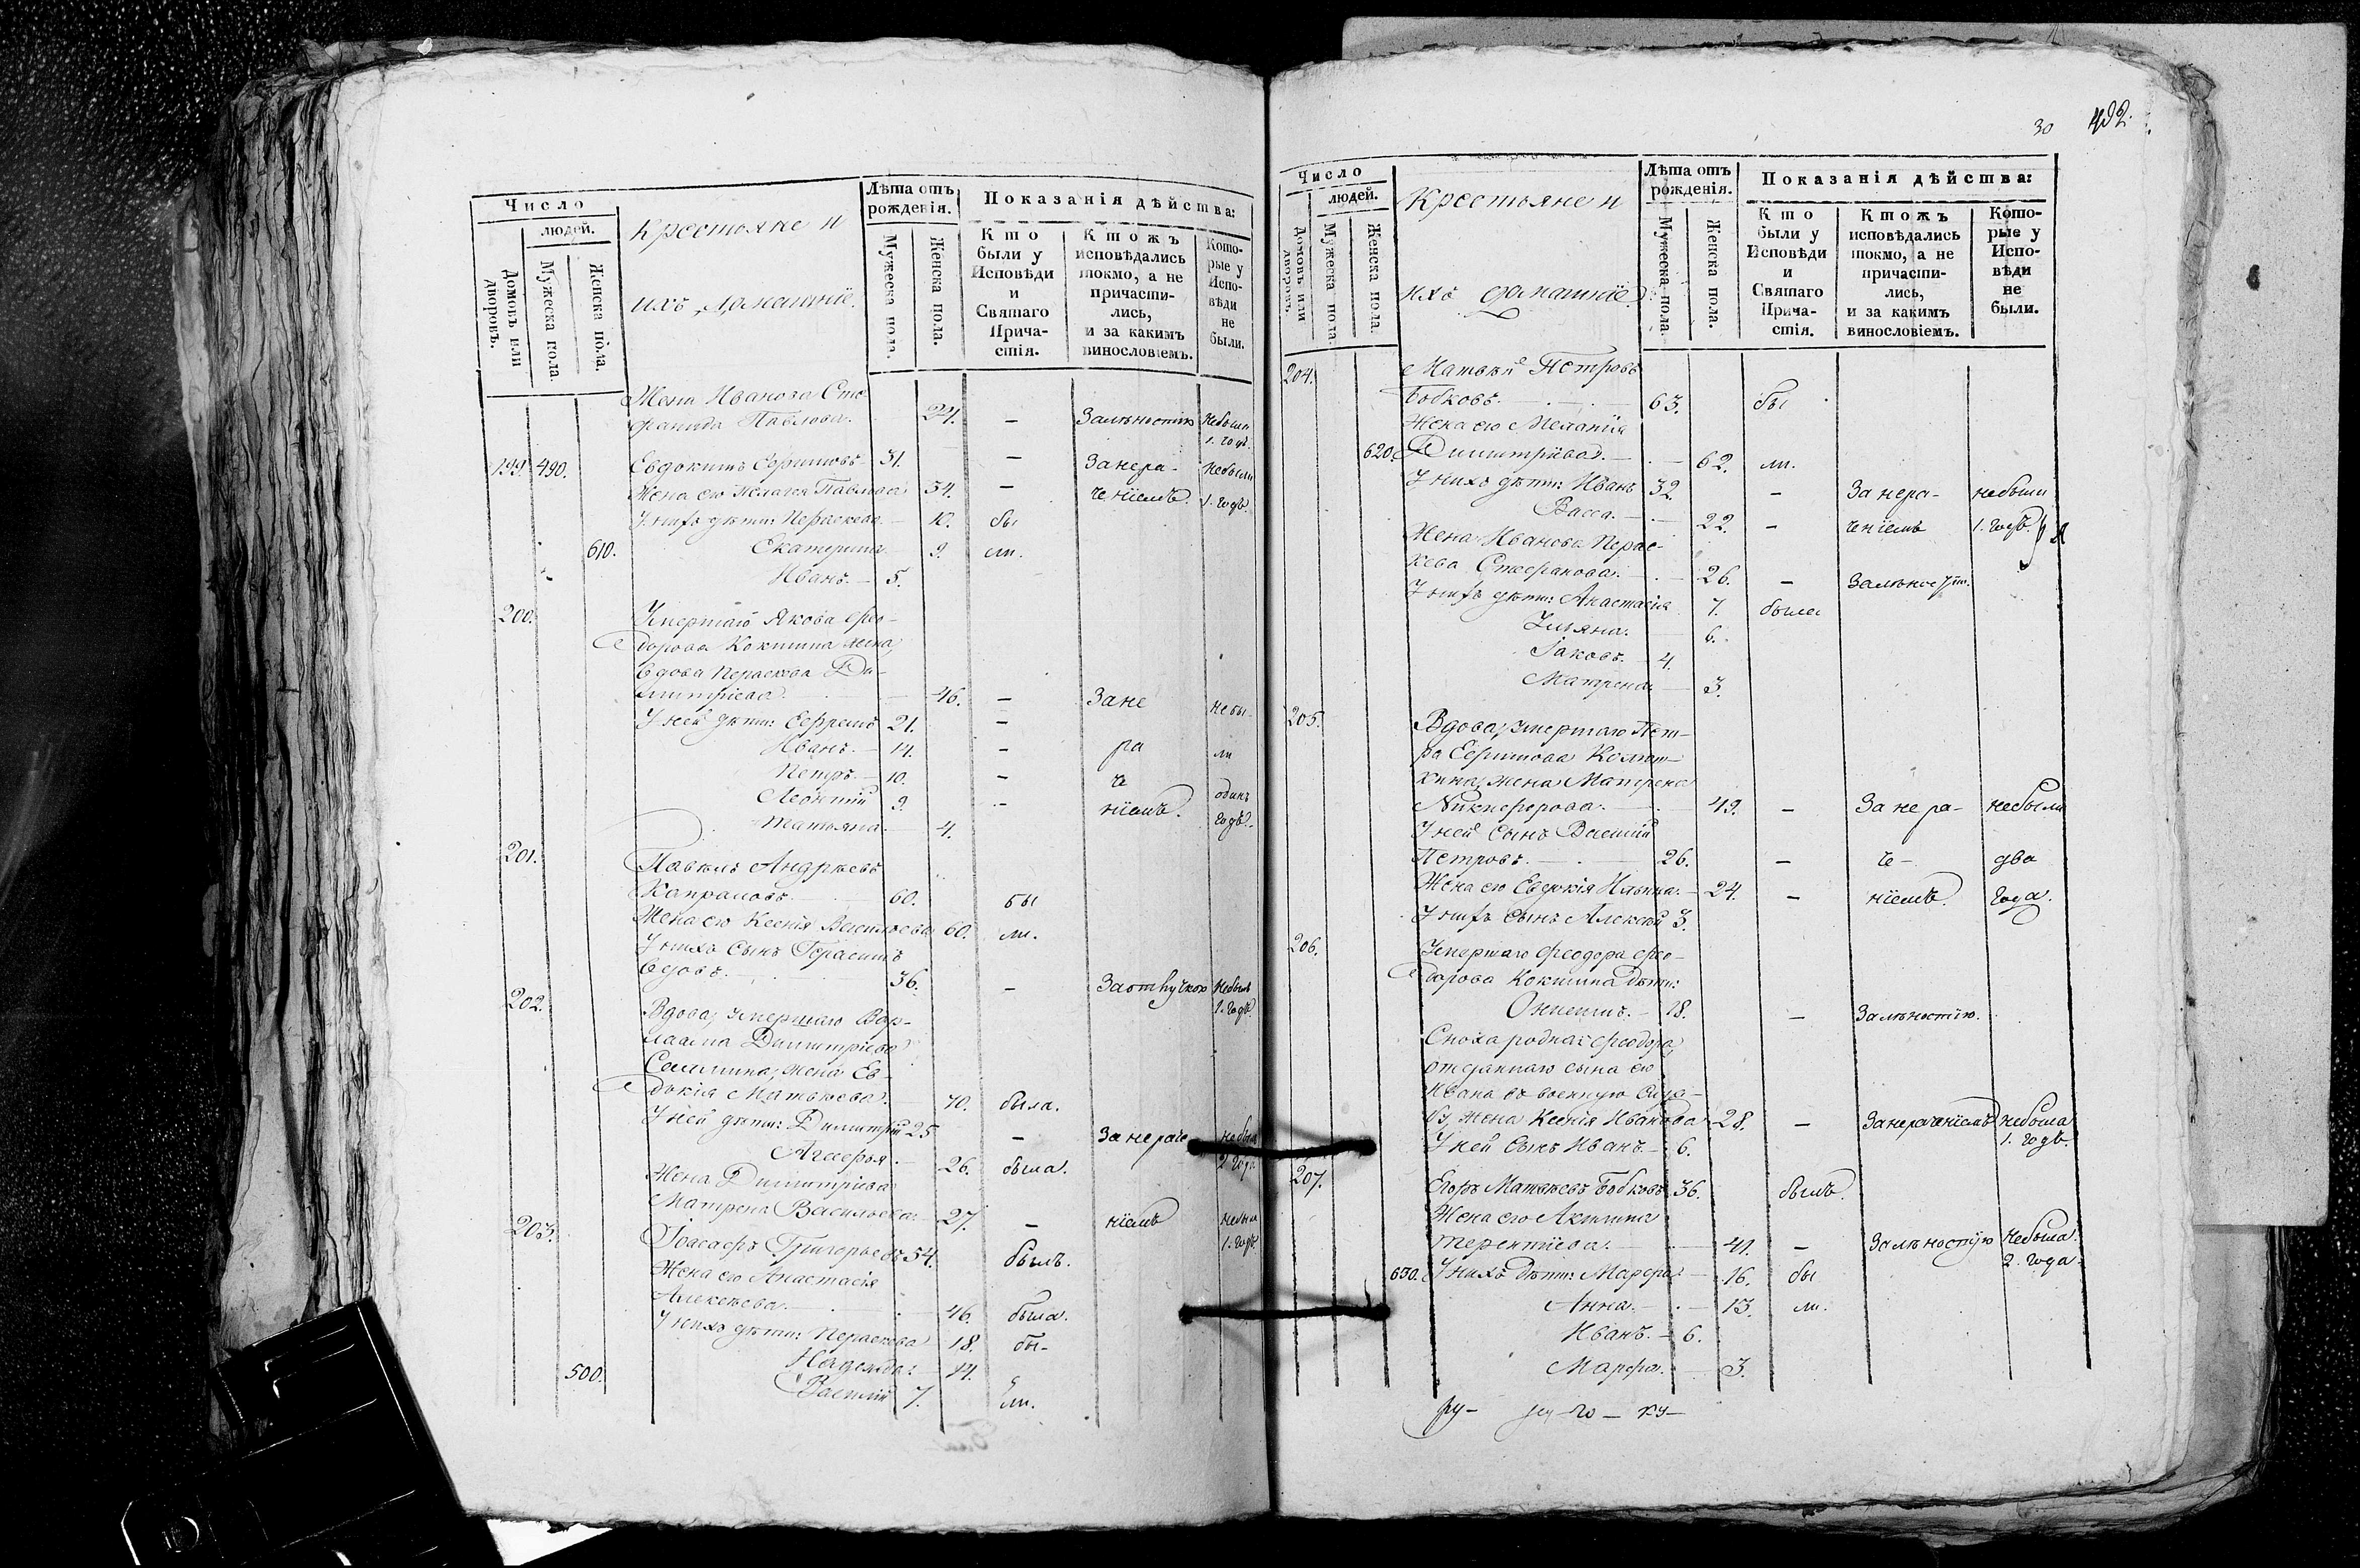 Число
людей.
Домовъ или дворовъ.
Мужеска пола.
Женска пола.
Крестьяне и
ихъ домашніе.
Лѣта отъ рожденія.
Мужеска пола.
Женска пола.
Показанія дѣйства:
Кто были у Исповѣди и Святаго Прича-стія.
Ктожъ исповѣдались токмо, а не причасти-лись, и за какимъ винословіемъ.
Кото-рые у Испо-вѣди не были.
Жена Иванова Сте-
фанида Павлова. 24. — Залѣностію небыла
1. годъ.
199. 490. Евдокимъ Ефимовъ 31. — Занера- небыли
Жена его Пелагея Павлова 34. — ченіемъ. 1. годъ.
У нихъ дѣти: Параскева 10. бы
610. Екатерина 9. ли.
Иванъ. 5.
200. Умершаго Якова Фео-
дорова Кокшина жена,
вдова Параскева Ди-
митріева 46. — Зане небы-
У ней дѣти: Ефремъ 21. —
Иванъ. 14. — ра ли
Петръ. 10. — че
Леонтій 9. — ніемъ. одинъ
Татьяна. 4. годъ.
201. Павелъ Андреевъ
Капраловъ 60. бы
Жена его Ксенія Васильева 60. ли.
У нихъ сынъ Герасимъ
вдовъ. 36. — Заотлучкою небылъ
1. годъ.
202. Вдова, умершаго Вар-
лаама Димитріева
жена Ев-
докія Матвѣева. 70. была.
У ней дѣти: Димитрій 25 — Занераче
2 года
26. была.
Жена Димитріева
Матрена Васильева. 27. — ніемъ небыла
1. годъ.
203. Іоасафъ Григорьевъ 54. былъ.
Жена его Анастасія
Алексѣева. 46. была.
У нихъ дѣти: Параскева 18. бы-
Надежда. 14.
500. Василій 7. ли.
30 492.
Число
людей.
Домовъ или дворовъ.
Мужеска пола.
Женска пола.
Крестьяне и
ихъ домашніе.
Лѣта отъ рожденія.
Мужеска пола.
Женска пола.
Показанія дѣйства:
Кто были у Исповѣди и Святаго Прича-стія.
Ктожъ исповѣдались токмо, а не причасти-лись, и за какимъ винословіемъ.
Кото-рые у Испо-вѣди не были.
204. Матвѣй Петровъ
Бобковъ. 63. бы
Жена его Меланія
620. Димитріева. 62. ли.
У нихъ дѣти: Иванъ 32 — Занера- небыли
Васса. 22. — ченіемъ 1. годъ.
Жена Иванова Парас-
кева Стефанова. 26. — Залѣностію.
У нихъ дѣти: Анастасія 7. была
Ульяна. 6.
Іаковъ. 4.
Матрена. 3.
205. Вдова, умершаго Пет-
ра Ефимова
жена Матрена
Никифорова. 49. — За не ра- небыли
У ней сынъ Василій
Петровъ. 26. — че- два
Жена его Евдокія Ильина. 24. — ніемъ. года.
У нихъ сынъ Алексѣй 3.
206. Умершаго Феодора Фео-
дорова Кокшина дѣти:
Онисимъ. 18. — Залѣностію.
Сноха родная Феодора,
отданнаго сына его
Ивана въ военную служ-
бу, жена Ксенія Иванова 28. — Занераченіемъ небыла
1. годъ.
У ней сынъ Иванъ. 6.
207. Егоръ Матвѣевъ Бобковъ 36. былъ.
Жена его Акилина
Терентіева. 41. — Залѣностію небыла.
2. года.
630. У нихъ дѣти: Марфа. 16. бы
Анна. 13. ли.
Иванъ. 6.
Марфа. 3.
ру—